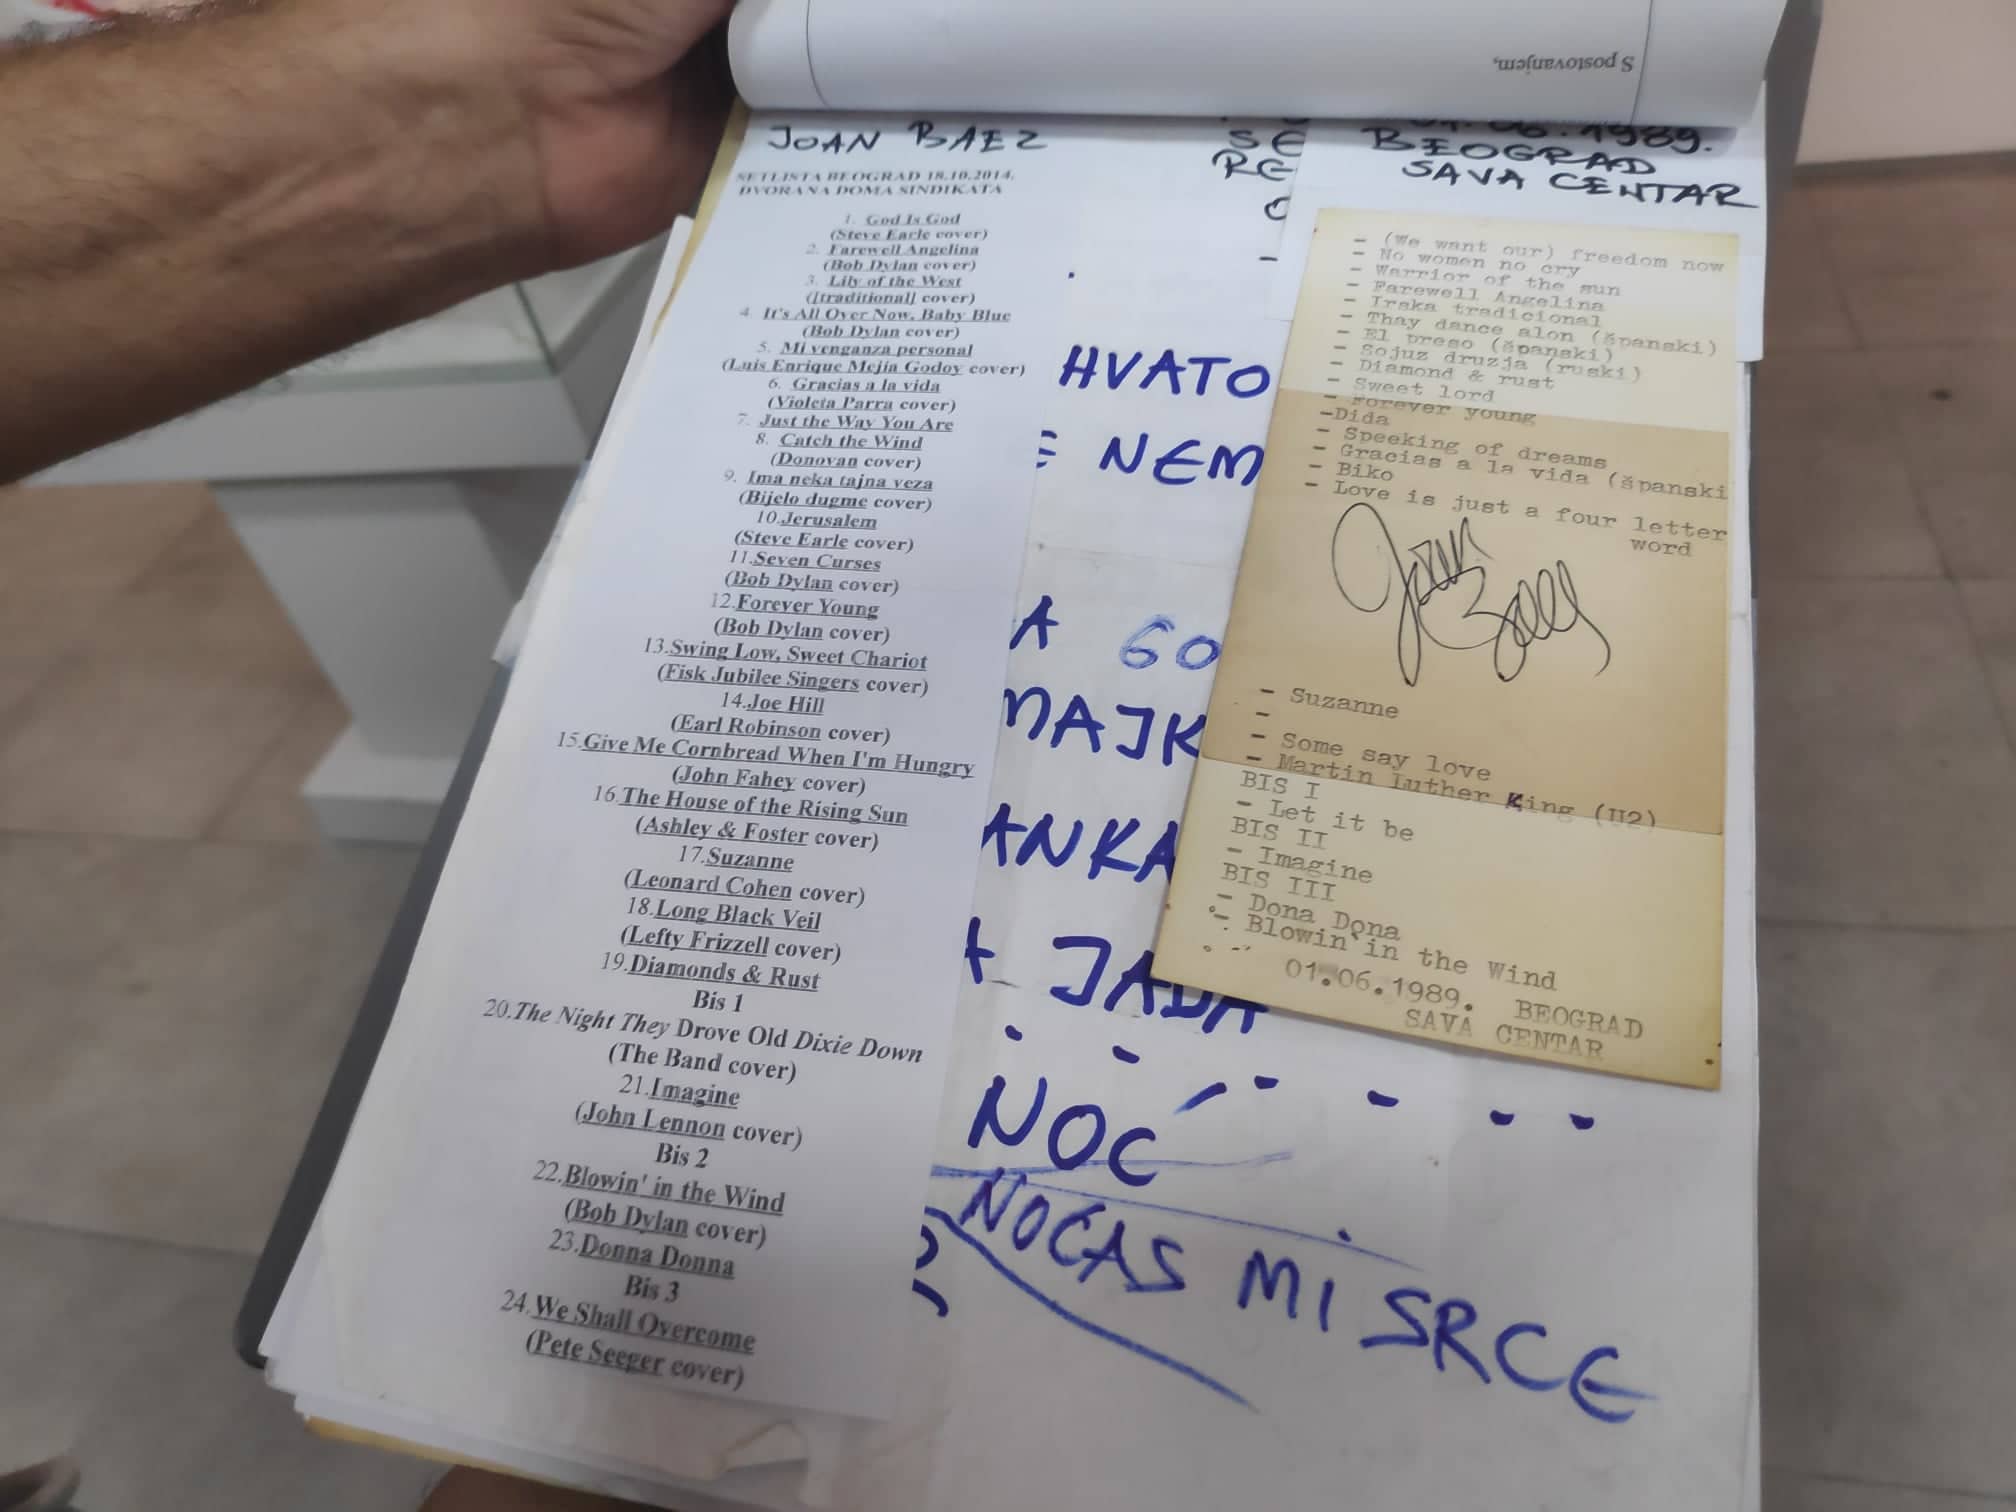 S postovanjem,
JOAN BAEZ
SETLISTA BEOGRAD 18.10.2014.
DVORANA DOMA SINDIKATA
1. God Is God
(Steve Earle cover)
2. Farewell Angelina
(Bob Dylan cover)
3. Lily of the West
([traditional] cover)
4. It's All Over Now, Baby Blue
(Bob Dylan cover)
5. Mi venganza personal
(Luis Enrique Mejía Godoy cover)
6. Gracias a la vida
(Violeta Parra cover)
7. Just the Way You Are
8. Catch the Wind
(Donovan cover)
9. Ima neka tajna veza
(Bijelo dugme cover)
10.Jerusalem
(Steve Earle cover)
11.Seven Curses
(Bob Dylan cover)
12.Forever Young
(Bob Dylan cover)
13.Swing Low, Sweet Chariot
(Fisk Jubilee Singers cover)
14.Joe Hill
(Earl Robinson cover)
15.Give Me Cornbread When I'm Hungry
(John Fahey cover)
16.The House of the Rising Sun
(Ashley & Foster cover)
17.Suzanne
(Leonard Cohen cover)
18.Long Black Veil
(Lefty Frizzell cover)
19.Diamonds & Rust
Bis 1
20.The Night They Drove Old Dixie Down
(The Band cover)
21.Imagine
(John Lennon cover)
Bis 2
22.Blowin' in the Wind
(Bob Dylan cover)
23.Donna Donna
Bis 3
24.We Shall Overcome
(Pete Seeger cover)
SE
RE
HVATO
E NEM
A GO
MAJK
ANKA
JADA
NOC
NOĆAS MI SRCE
01.06.1989.
BEOGRAD
SAVA CENTAR
- (We want our) freedom now
- No women no cry
- Warrior of the sun
- Farewell Angelina
- Irska tradicional
- Thay dance alon (španski)
- El preso (španski)
- Sojuz druzja (ruski)
- Diamond & rust
- Sweet lord
- Forever young
-Dida
- Speeking of dreams
- Gracias a la vida (španski
- Biko
- Love is just a four letter
word
Joan Baez
- Suzanne
-
- Some say love
- Martin Luther King (U2)
BIS I
- Let it be
BIS II
- Imagine
BIS III
- Dona Dona
- Blowin`in the Wind
01.06.1989. BEOGRAD
SAVA CENTAR